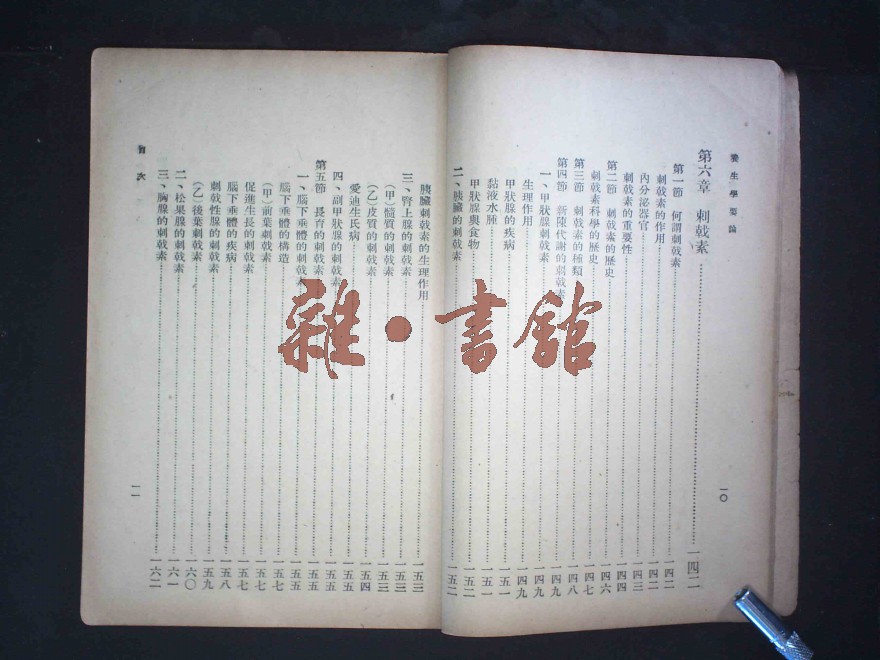 養生學要論
一〇
第六章 刺戟素…………一四二
第一節 何謂刺戟素…………一四二
刺戟素的作用…………一四二
內分泌器官…………一四三
刺戟素的重要性…………一四四
第二節 刺戟素的歷史…………一四六
刺戟素科學的歷史…………一四七
第三節 刺戟素的種類…………一四八
第四節 新陳代謝的刺戟素…………一四九
一、甲狀腺刺戟素…………一四九
生理作用…………一四九
甲狀腺的疾病…………一五一
黏液水腫…………一五一
甲狀腺與食物…………一五二
二、胰臟的刺戟素…………一五二
胰臟刺戟素的生理作用…………一五三
三、腎上腺的刺戟素…………一五三
(甲)髓質的刺戟素…………一五三
(乙)皮質的刺戟素…………一五四
愛迪生氏病…………一五五
四、副甲狀腺的刺戟素…………一五五
第五節 長育的刺戟素…………一五五
一、腦下垂體的刺戟素…………一五五
腦下垂體的構造…………一五七
(甲)前葉刺戟素…………一五七
促進生長的刺戟素…………一五七
腦下垂體的疾病…………一五八
刺戟性腺的刺戟素…………一五九
(乙)後葉刺戟素…………一六〇
二、松果腺的刺戟素…………一六一
三、胸腺的刺戟素…………一六二
目次
一一
雜·書館